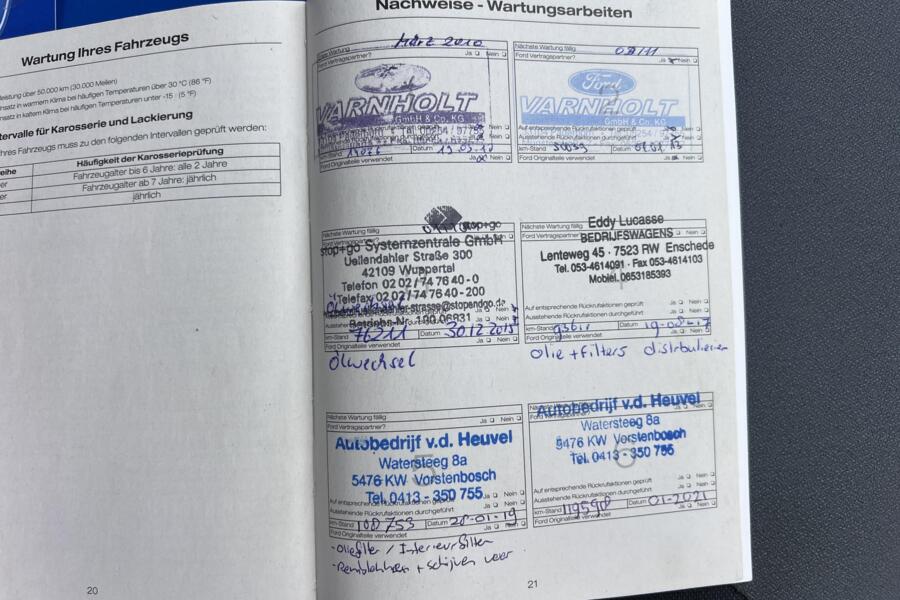 Wartung Ihres Fahrzeugs
leistung über 50.000 km (30.000 Meilen)
nsatz in warmem Klima bei häufigen Temperaturen über 30 °C (86 °F)
insatz in kaltem Klima bei häufigen Temperaturen unter -15 (5 °F)
tervalle für Karosserie und Lackierung
hres Fahrzeugs muss zu den folgenden Intervallen geprüft werden:
eihe Häufigkeit der Karosserieprüfung
er Fahrzeugalter bis 6 Jahre: alle 2 Jahre
er Fahrzeugalter ab 7 Jahre: jährlich
jährlich
20
Nachweise - Wartungsarbeiten
März 2010
Ford Vertragspartner? Ja Nein
VARNHOLT
GmbH & Co. KG
km-Stand Datum
Ford Originalteile verwendet Ja Nein
Nächste Wartung fällig 09/11
Ford Vertragspartner? Ja Nein
Ford
VARNHOLT
GmbH & Co. KG
Auf entsprechende Rückrufaktionen geprüft
Ausstehende Rückrufaktionen durchgeführt
km-Stand Datum
Ford Originalteile verwendet Ja Nein
Nächste Wartung fällig
stop+go
stop+go Systemzentrale GmbH
Uellendahler Straße 300
42109 Wuppertal
Telefon 02 02 / 74 76 40 - 0
Telefax 02 02 / 74 76 40 - 200
Betriebs-Nr. 100.06831
km-Stand 76211 Datum 30.12.2015
Ford Originalteile verwendet Ja Nein
Ölwechsel
Nächste Wartung fällig
Ford Vertragspartner? Ja Nein
Eddy Lucasse
BEDRIJFSWAGENS
Lenteweg 45 - 7523 RW Enschede
Tel. 053-4614091 - Fax 053-4614103
Mobiel. 0653185393
Auf entsprechende Rückrufaktionen geprüft Ja Nein
Ausstehende Rückrufaktionen durchgeführt Ja Nein
km-Stand Datum 19-08-17
Ford Originalteile verwendet Ja Nein
olie + filters distribulieren
Nächste Wartung fällig
Ford Vertragspartner? Ja Nein
Autobedrijf v.d. Heuvel
Watersteeg 8a
5476 KW Vorstenbosch
Tel. 0413 - 350 755
Auf entsprechende Rückrufaktionen geprüft Ja Nein
Ausstehende Rückrufaktionen durchgeführt Ja Nein
km-Stand 108 753 Datum 28-01-19
Ford Originalteile verwendet Ja Nein
- oliefilter / Interieurfilter
- Remblokken + schijven voor
Autobedrijf v.d. Heuvel
Watersteeg 8a
5476 KW Vorstenbosch
Tel. 0413 - 350 755
6
Auf entsprechende Rückrufaktionen geprüft Ja Nein
Ausstehende Rückrufaktionen durchgeführt Ja Nein
km-Stand 119598 Datum 01-2021
Ford Originalteile verwendet Ja Nein
21